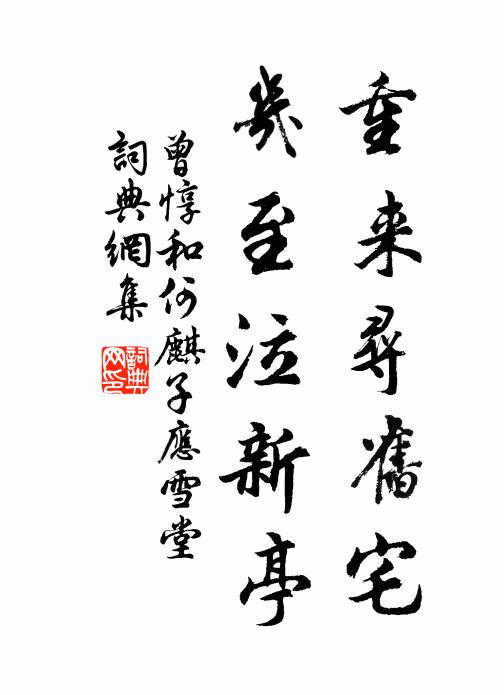 重来尋舊宅
幾至泣新亭
曾惇和何麒子應雪堂
詞典網集
詞典網印